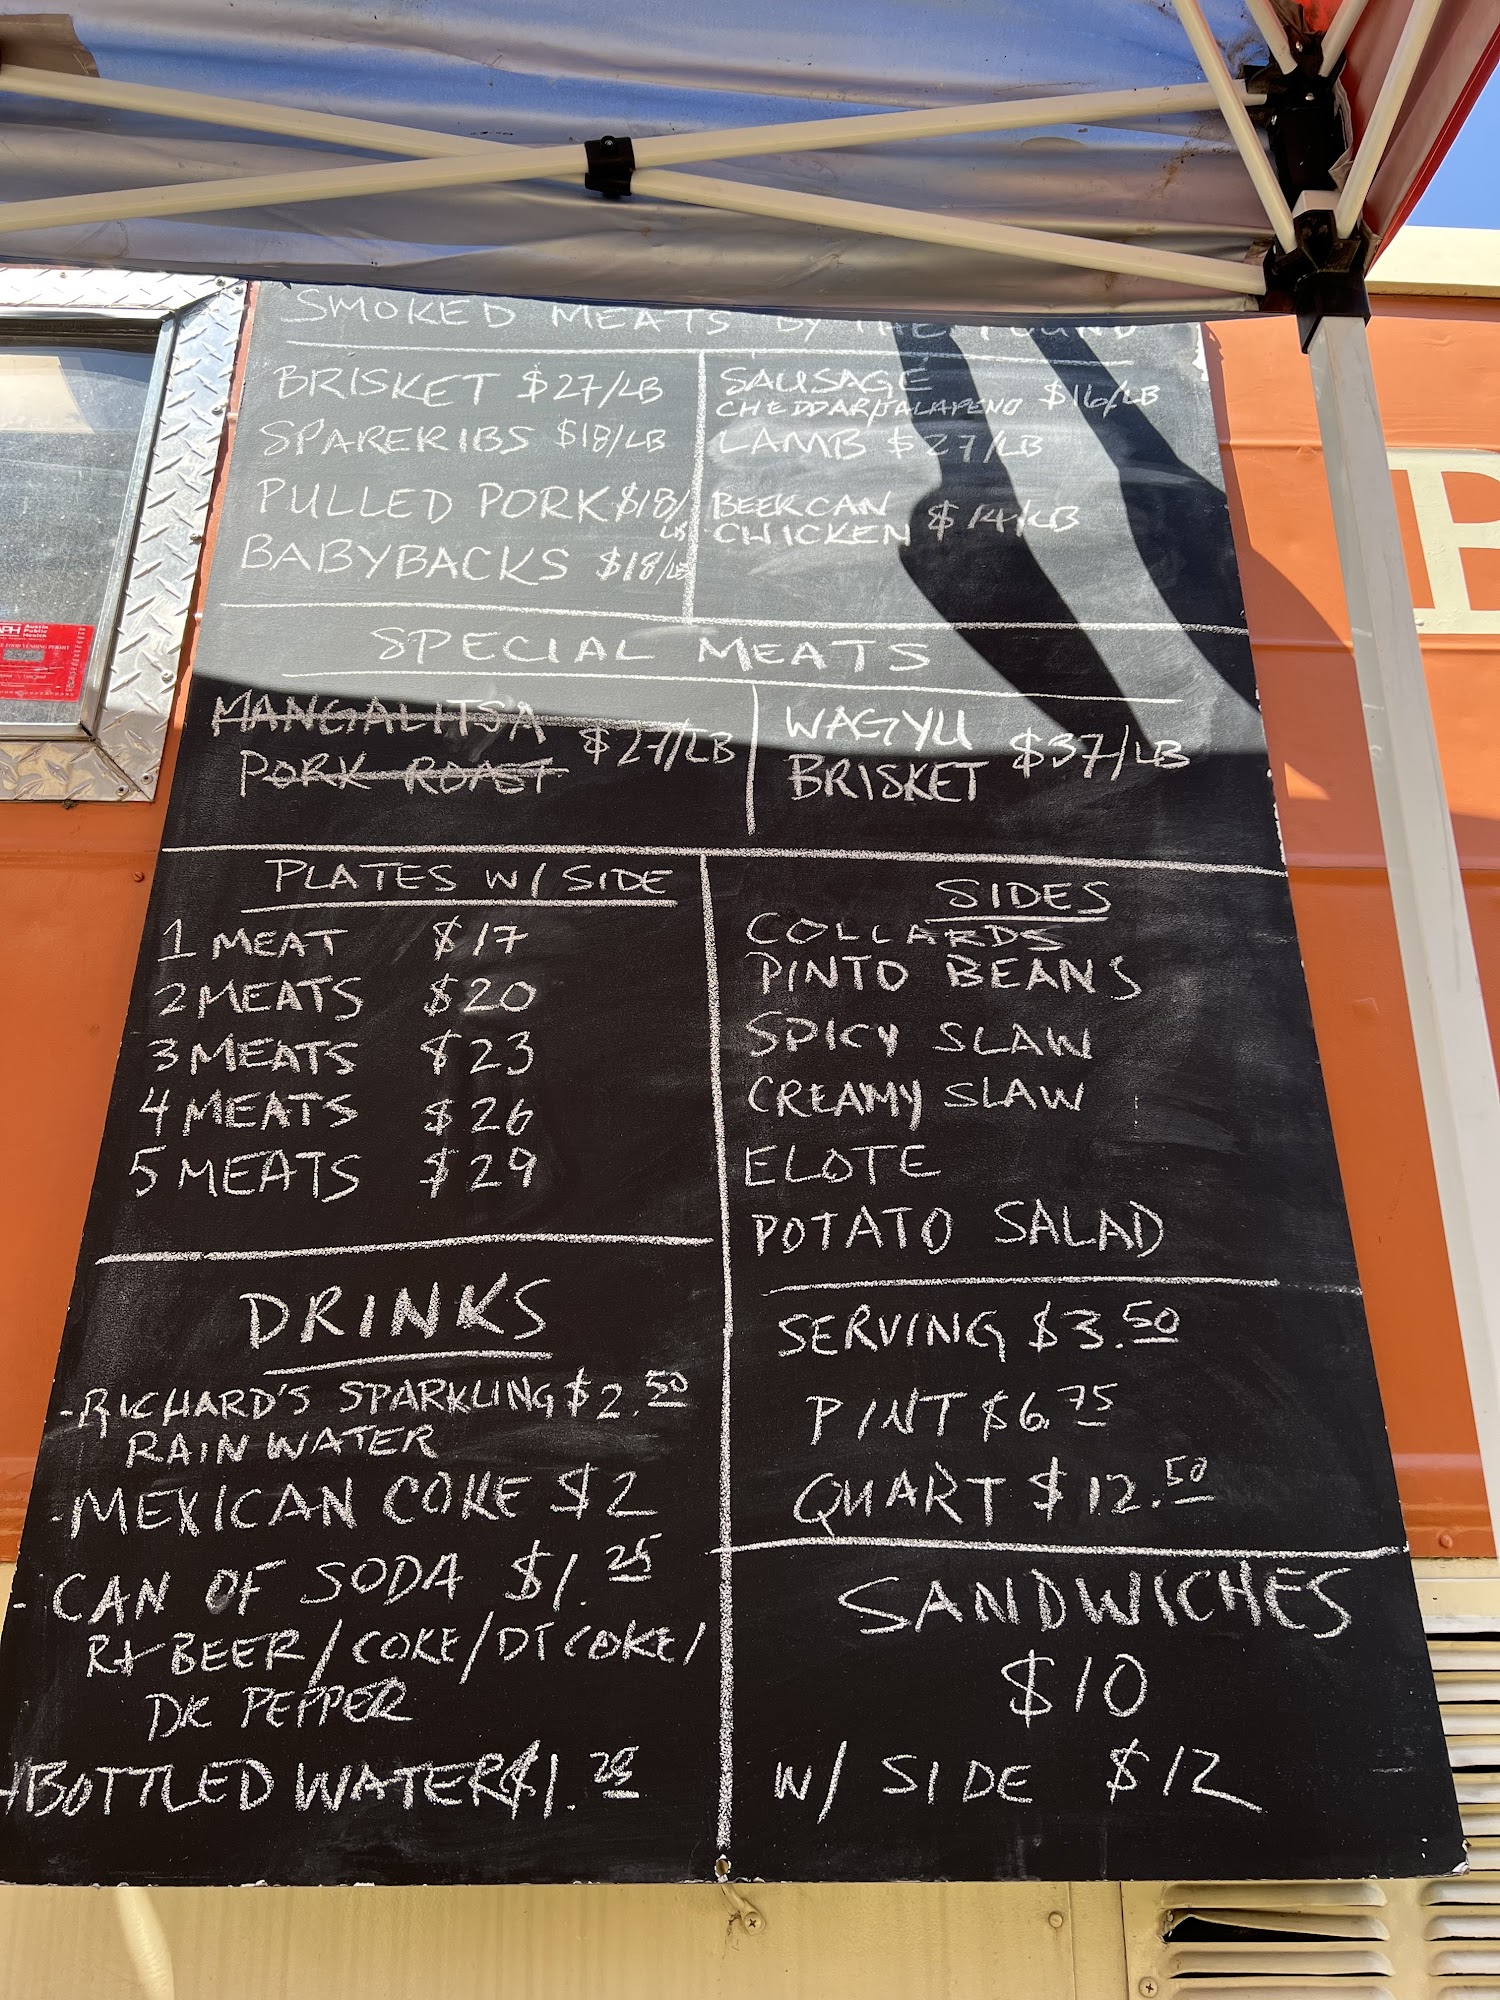 SMOKED MEATS BY THE POUND
BRISKET $27/LB
SPARERIBS $18/LB
PULLED PORK $18/
LB
BABYBACKS $18/LB
SAUSAGE
CHEDDAR/JALAPENO $16/LB
LAMB $27/LB
BEER CAN
CHICKEN $14/LB
SPECIAL MEATS
MANGALITSA
PORK ROAST $27/LB
WAGYU
BRISKET $37/LB
PLATES W/ SIDE
1 MEAT $17
2 MEATS $20
3 MEATS $23
4 MEATS $26
5 MEATS $29
SIDES
COLLARDS
PINTO BEANS
SPICY SLAW
CREAMY SLAW
ELOTE
POTATO SALAD
SERVING $3.50
PINT $6.75
QUART $12.50
DRINKS
-RICHARD'S SPARKLING $2.50
RAIN WATER
-MEXICAN COKE $2
-CAN OF SODA $1.25
RT BEER/COKE/DT COKE/
DR PEPPER
-BOTTLED WATER $1.25
SANDWICHES
$10
W/ SIDE $12
APH Austin
Public
Health
B